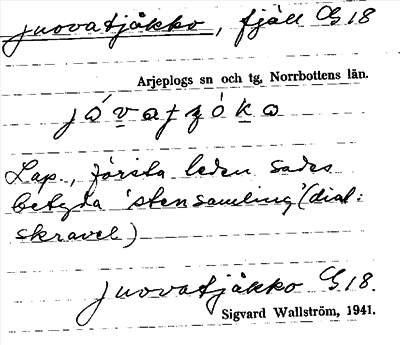 juovatjåkko, fjäll G 18
Arjeplogs sn och tg, Norrbottens län.
Lap., första leden sades
betyda 'stensamling' (dial:
skravel)
juovatjåkko G 18.
Sigvard Wallström, 1941.